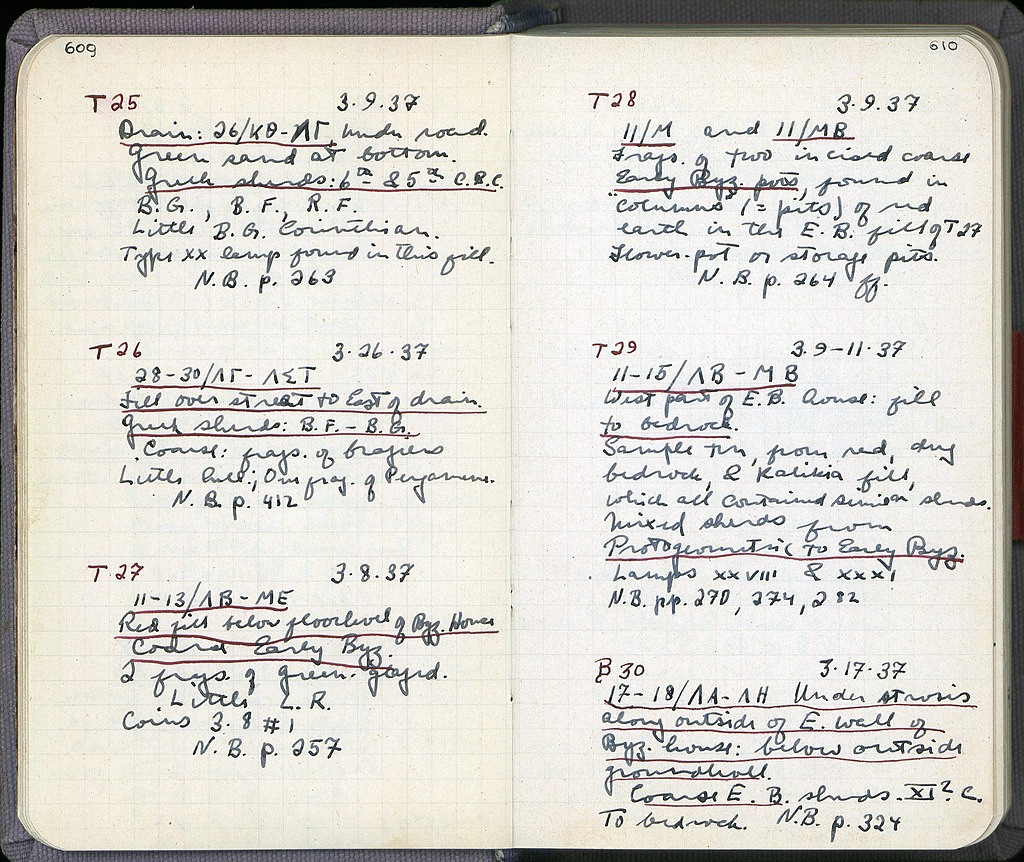 609
T 25 3.9.37
Drain: 26/ΚΘ-ΛΓ, Under road.
Green sand at bottom.
Greek sherds: 6th & 5th C. B.C.
B.G., B.F., R.F.
Little B.G. Corinthian.
Type XX lamp found in this fill.
N.B. p. 263
T 26 3.26.37
28-30/ΛΓ-ΛΣΤ
Fill over street to East of drain.
Greek sherds: B.F. - B.G.
Coarse: frags. of braziers
Little hell.; One frag. of Pergamene.
N.B. p. 412
T 27 3.8.37
11-13/ΛΒ-ΜΕ
Red fill below floorlevel of Byz. House
Coarse Early Byz.
2 frags. of green-glazed.
Little L.R.
Coins 3.8 #1
N.B. p. 257
610
T 28 3.9.37
11/Μ and 11/ΜΒ
Frags. of two incised coarse
Early Byz. pots, found in
"columns" (= pits) of red
earth in the E.B. fill of T 27
Flower-pot or storage pits.
N.B. p. 264 ff.
T 29 3.9-11.37
11-15/ΛΒ-ΜΒ
West part of E.B. house: fill
to bedrock.
Sample tin, from red, dug
bedrock, & Kalikia fill,
which all contained similar sherds.
Mixed sherds from
Protogeometric to Early Byz.
Lamps XXVIII & XXXI
N.B. pp. 270, 274, 282
B 30 3.17.37
17-18/ΛΑ-ΛΗ Under strosis
along outside of E. wall of
Byz. house: below outside
groundlevel.
Coarse E.B. sherds. XI? C.
To bedrock. N.B. p. 324